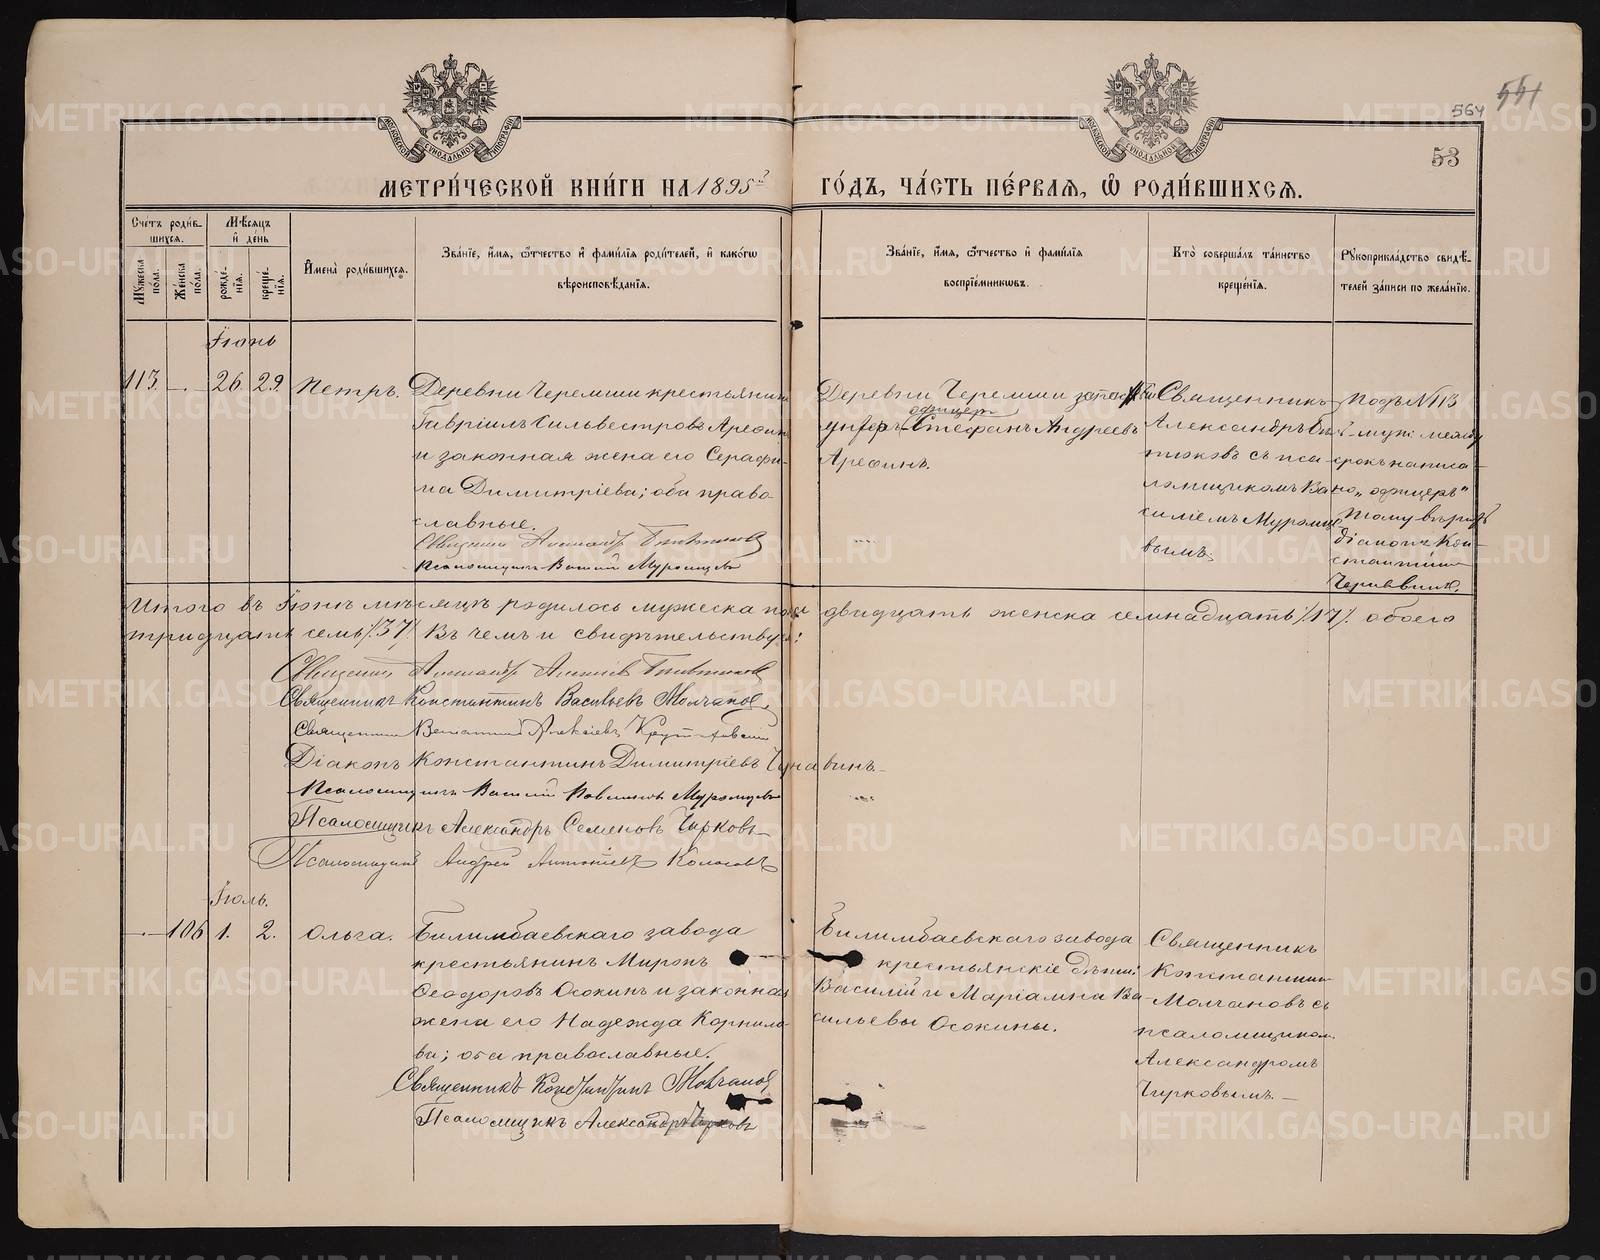 564 551
53
МОСКОВСКОЙ СѴНОДАЛЬНОЙ ТИПОГРАФІИ
МОСКОВСКОЙ СѴНОДАЛЬНОЙ ТИПОГРАФІИ
МЕТРИ́ЧЕСКОЙ КНИ́ГИ НА 1895й ГО́ДЪ, ЧА́СТЬ ПЕ́РВАЯ, Ѡ҆ РОДИ́ВШИХСЯ.
Сче́тъ роди́в-
шихся.
Мѣ́сяцъ
и҆ де́нь
Мꙋ́жеска по́ла.
Же́нска по́ла.
рожде́-
нїя.
креще́-
нїя.
И҆мена̀ роди́вшихся.
Зва́нїе, и҆́мя, ѻ҆́тчество и҆ фами́лїя роди́телей, и҆ како́гѡ
вѣроисповѣ́данїя.
Зва́нїе, и҆́мя, ѻ҆́тчество и҆ фами́лїя
воспрїе́мникѡвъ.
Кто̀ соверша́лъ та́инство
креще́нїя.
Рꙋкоприкла́дство свидѣ́-
телей за́писи по жела́нїю.
Іюнь
113. — 26. 29. Петръ.
Деревни Черемши крестьянинъ
Гавріилъ Сильвестровъ Арефинъ
и законная жена его Серафи-
ма Димитріева; оба право-
славные.
Священникъ Александръ
Псаломщикъ Василій Муромцевъ
Деревни Черемши
офицеръ
унтеръ Стефанъ Андреевъ
Арефинъ.
Священникъ
Александръ
съ пса-
ломщикомъ Ва-
силіемъ Муромце-
вымъ.
Подъ №113
между
строкъ написа-
но „офицеръ"
тому вѣрить
діаконъ Кон-
стантинъ
Чернавинъ.
Итого въ Іюнѣ мѣсяцѣ родилось мужеска пола двадцать женска семнадцать /17/. обоего
тридцать семь /37/. Въ чемъ и свидѣтельствуемъ:
Священникъ Александръ Алексіевъ
Священникъ Константинъ Васильевъ Молчановъ.
Священникъ Веніаминъ Алексіевъ
Діаконъ Константинъ Димитріевъ Чернавинъ
Псаломщикъ Василій Павловъ Муромцевъ
Псаломщикъ Александръ Семеновъ Чирковъ
Псаломщикъ Андрей Антоніевъ Колосовъ
Іюль.
— 106 1. 2. Ольга.
Билимбаевскаго завода
крестьянинъ Миронъ
Ѳеодоровъ Осокинъ и законная
жена его Надежда Корнило-
ва; оба православные.
Священникъ Константинъ Молчановъ
Псаломщикъ Александръ Чирковъ
Билимбаевскаго завода
крестьянскіе дѣти:
Василій и Маріамна Ва-
сильевы Осокины.
Священникъ
Константинъ
Молчановъ съ
псаломщикомъ
Александромъ
Чирковымъ.
METRIKI.GASO-URAL.RU